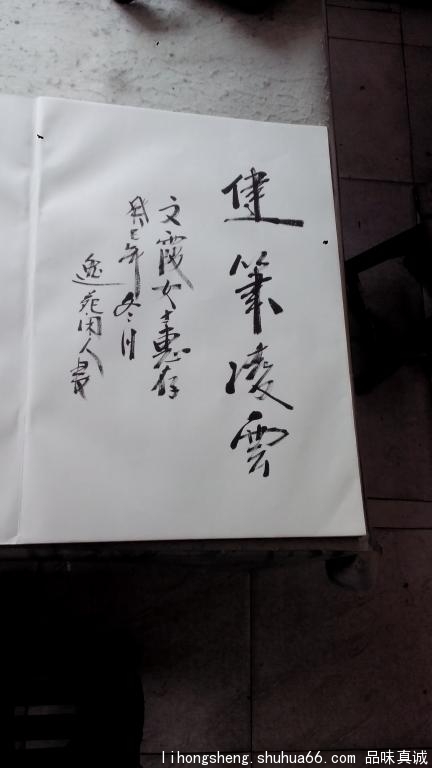 健筆凌雲
文霞女士惠存
癸巳年冬月
逸苑闲人書
lihongsheng.shuhua66.com 品味真诚